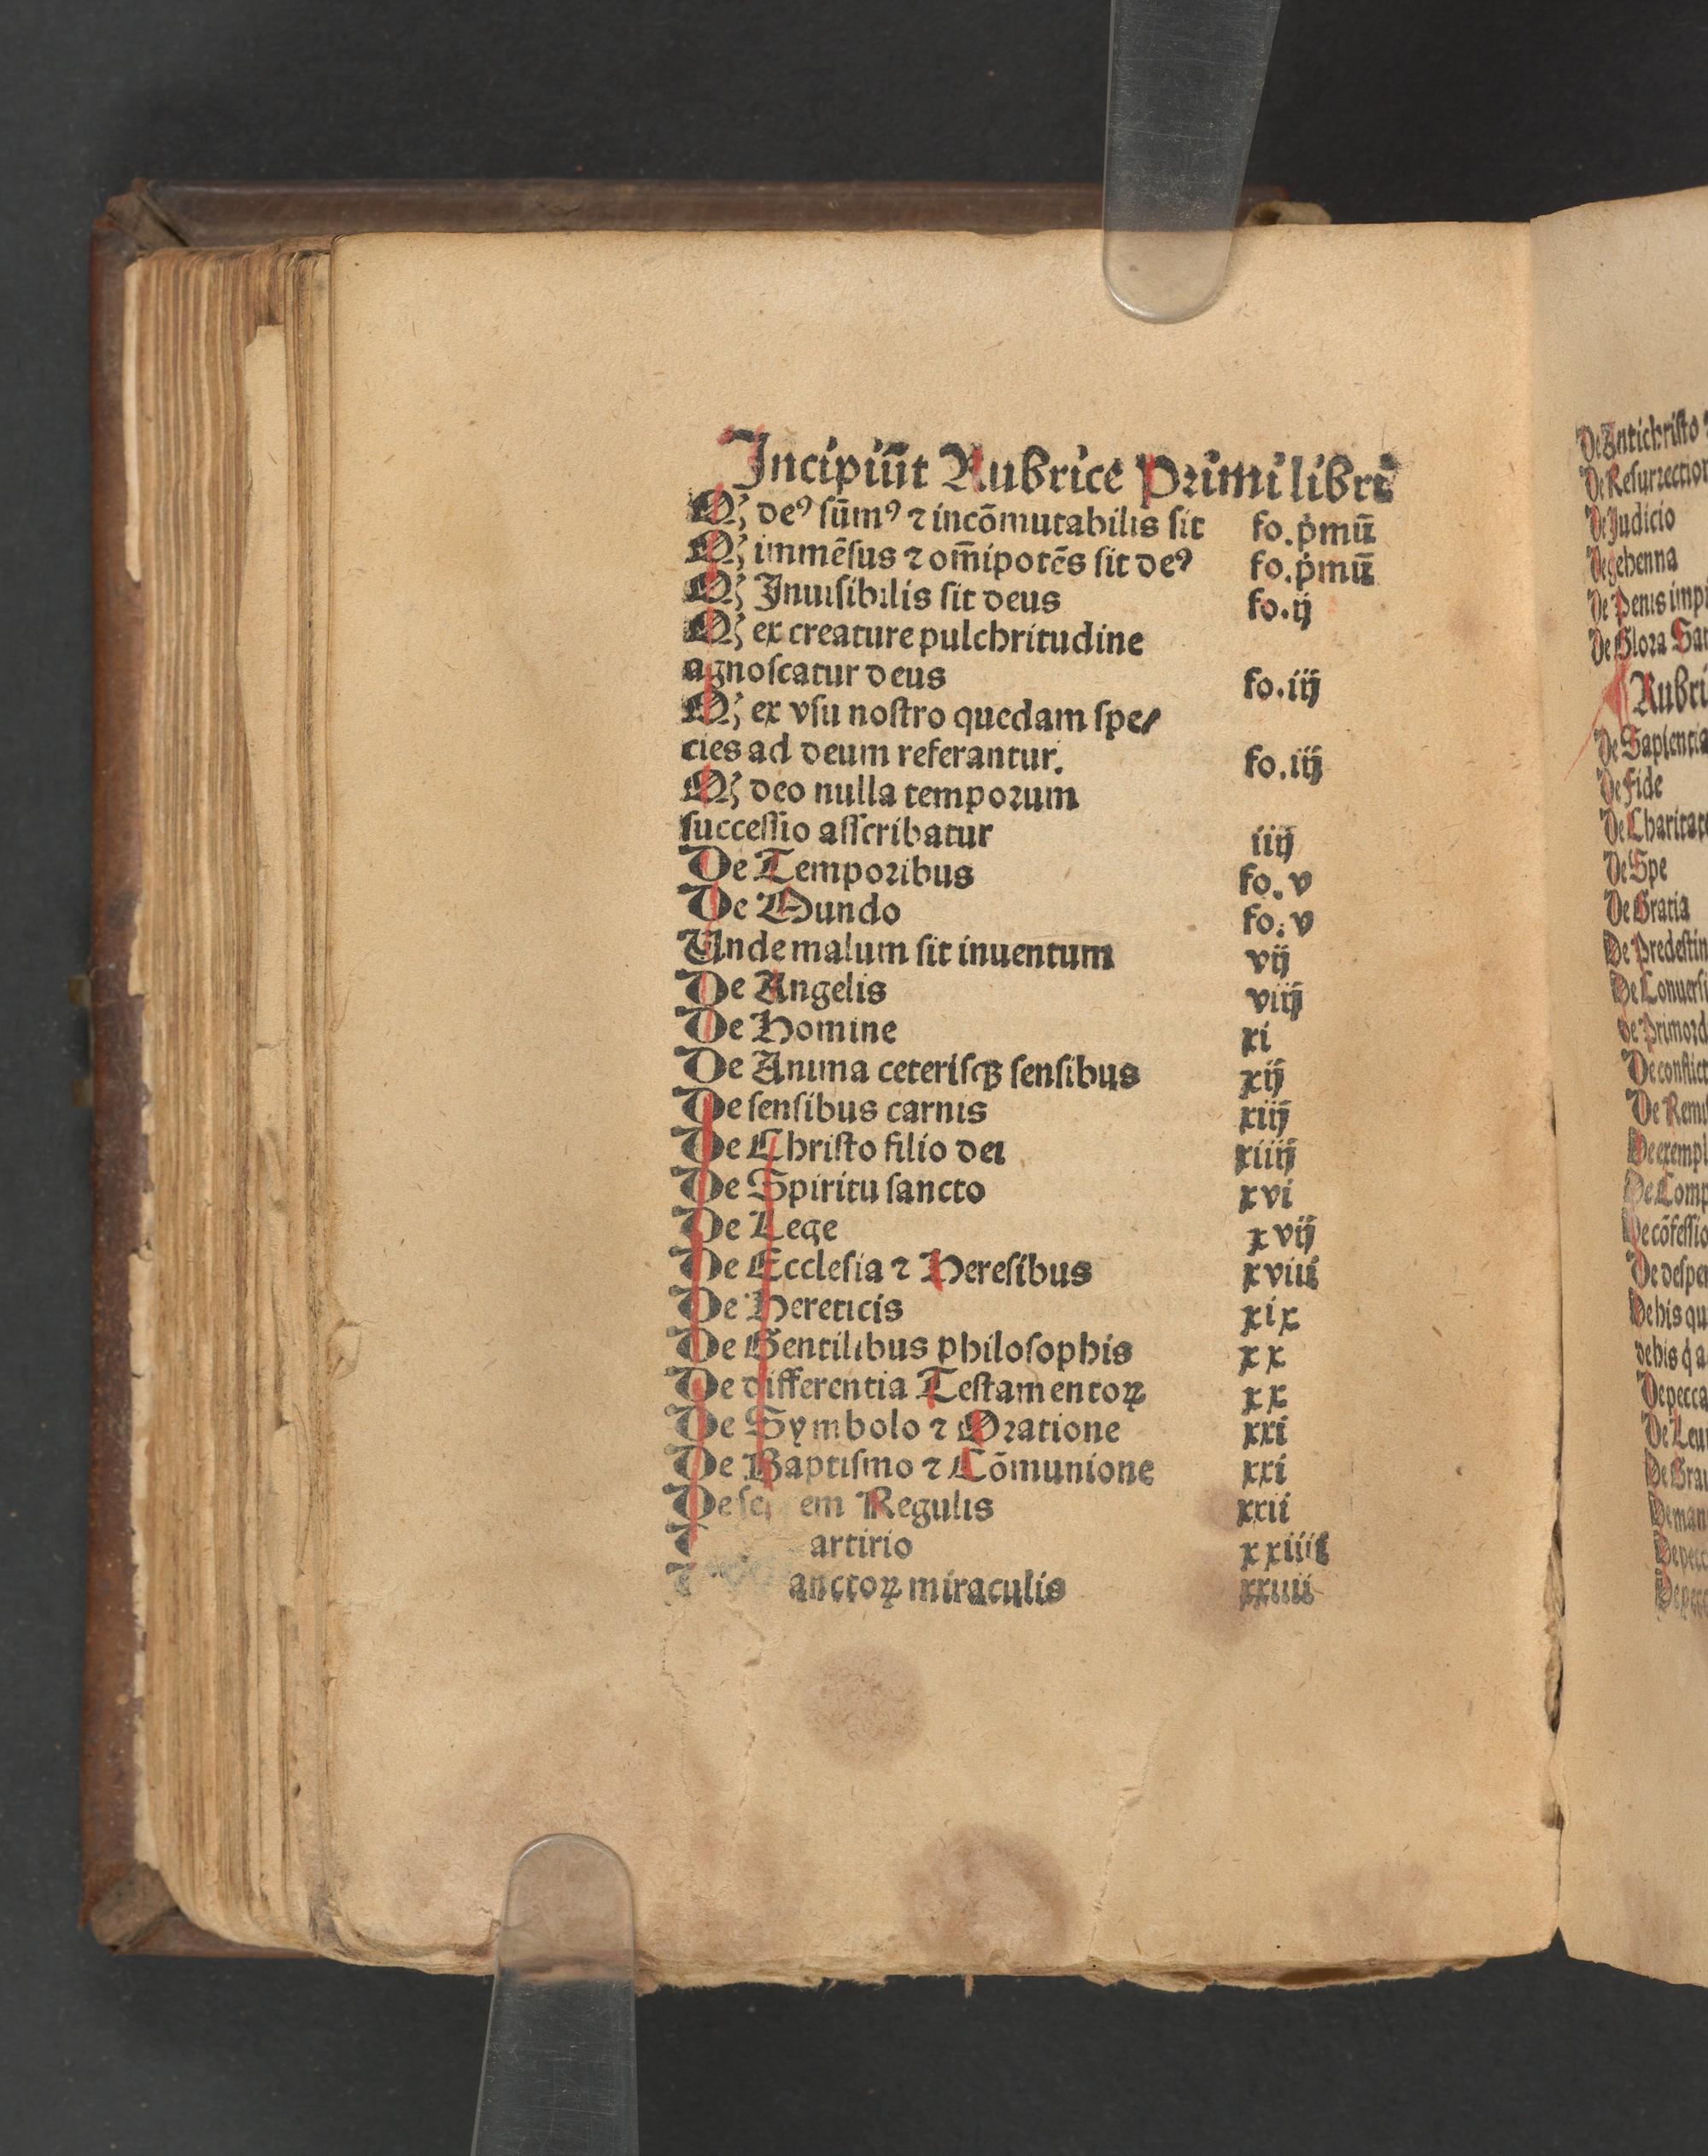 Incipiūt Rubrice Primi libri
Qꝫ deꝰ sūmꝰ ⁊ incōmutabilis sit fo.pͥmū
Qꝫ immēsus ⁊ om̄ipotēs sit deꝰ fo.pͥmū
Qꝫ Inuisibilis sit deus fo.ij
Qꝫ ex creature pulchritudine
agnoscatur deus fo.iij
Qꝫ ex vsu nostro quedam spe/
cies ad deum referantur. fo.iij
Qꝫ deo nulla temporum
successio asscribatur iiij
De Temporibus fo.v
De Mundo fo.v
Unde malum sit inuentum vij
De Angelis viij
De Homine xi
De Anima ceterisqꝫ sensibus xij
De sensibus carnis xiij
De Christo filio dei xiiij
De Spiritu sancto xvi
De Lege xvij
De Ecclesia ⁊ Heresibus xviii
De Hereticis xix
De Gentilibus philosophis xx
De differentia Testamentoꝝ xx
De Symbolo ⁊ Oratione xxi
De Baptismo ⁊ Cōmunione xxi
De se em Regulis xxii
artirio xxiiii
anctoꝝ miraculis xxiiii
De Antichristo
De Resurrection
De Judicio
De gehenna
De Penis imp
De Glora Sa
Rubri
De Sapientia
De Fide
De Charitat
De Spe
De Gratia
De Predestin
De Conuersi
De Primord
De conflict
De Remi
De exempl
De Comp
De cōfessio
De despe
De his qu
De pecca
De Gra